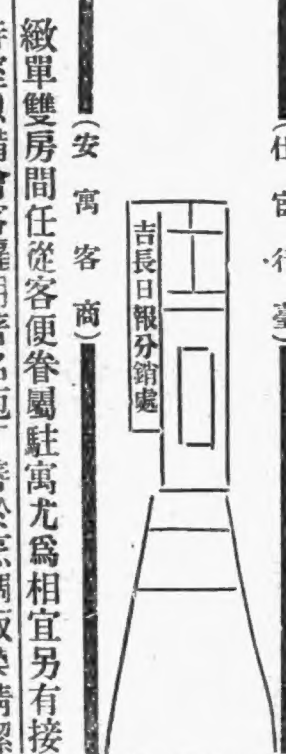 (仕官行臺)
吉長日報分銷處
(安寓客商)
緻單雙房間任從客便眷屬駐寓尤爲相宜另有接